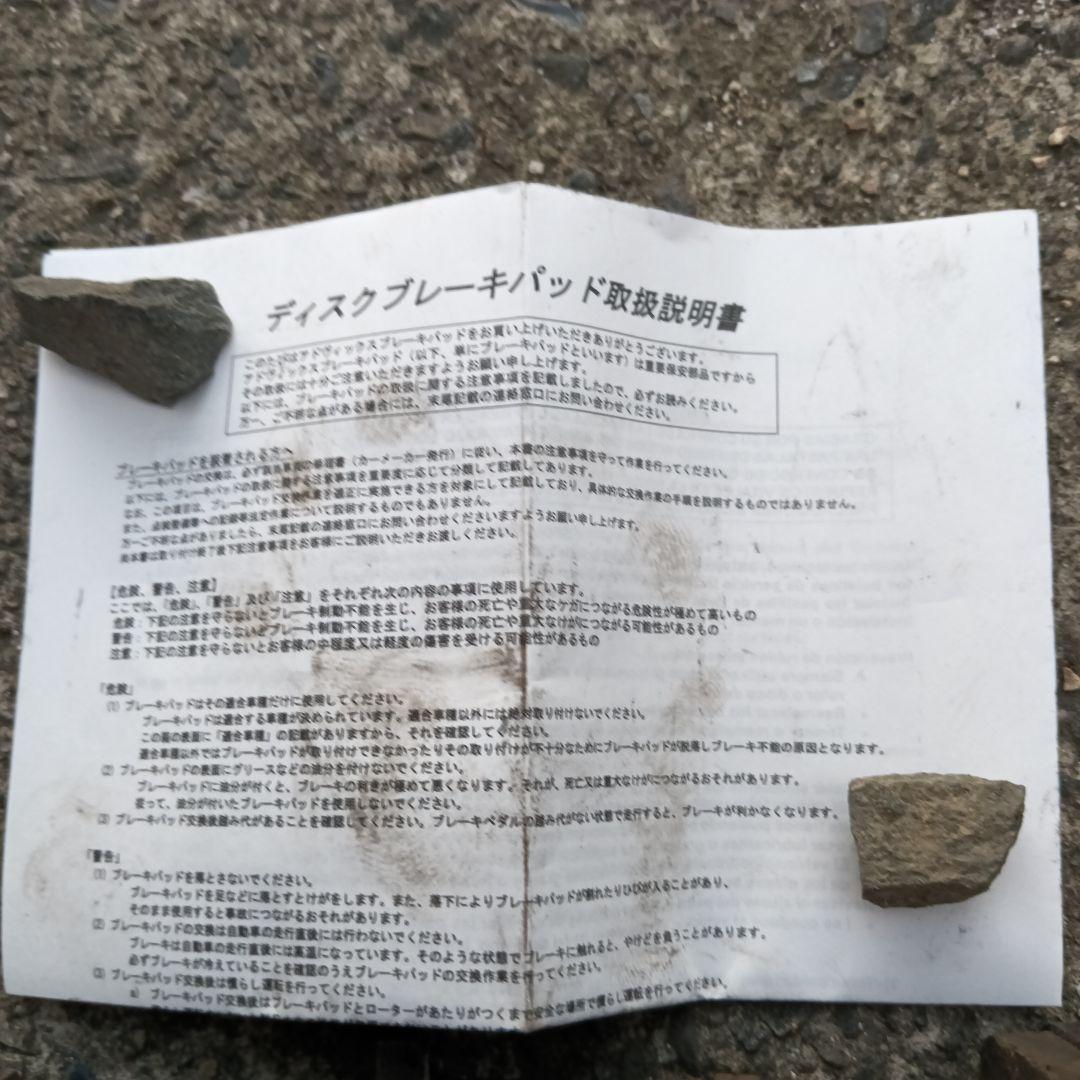 ディスクブレーキパッド取扱説明書
このたびはアドヴィックスブレーキパッドをお買い上げいただきありがとうございます。
アドヴィックスブレーキパッド（以下、単にブレーキパッドといいます）は重要保安部品ですから
その取扱には十分ご注意いただきますようお願い申し上げます。
以下には、ブレーキパッドの取扱に関する注意事項を記載しましたので、必ずお読みください。
万一、ご不明な点がある場合には、末尾記載の連絡窓口にお問い合わせください。
ブレーキパッドを装着される方へ
ブレーキパッドの交換は、必ず該当車両の修理書（カーメーカー発行）に従い、本書の注意事項を守って作業を行ってください。
以下には、ブレーキパッドの取扱に関する注意事項を重要度に応じて分類して記載してあります。
なお、この項目は、ブレーキパッド交換作業を適正に実施できる方を対象にして記載しており、具体的な交換作業の手順を説明するものではありません。
また、点検整備簿への記録等法定作業について説明するものでもありません。
万一ご不明な点がありましたら、末尾記載の連絡窓口にお問い合わせくださいますようお願い申し上げます。
尚本書は取り付け終了後下記注意事項をお客様にご説明いただきお渡しください。
【危険、警告、注意】
ここでは、「危険」、「警告」及び「注意」をそれぞれ次の内容の事項に使用しています。
危険：下記の注意を守らないとブレーキ制動不能を生じ、お客様の死亡や重大なケガにつながる危険性が極めて高いもの
警告：下記の注意を守らないとブレーキ制動不能を生じ、お客様の死亡や重大なけがにつながる可能性があるもの
注意：下記の注意を守らないとお客様の中程度又は軽度の傷害を受ける可能性があるもの
「危険」
(1) ブレーキパッドはその適合車種だけに使用してください。
ブレーキパッドは適合する車種が決められています。適合車種以外には絶対取り付けないでください。
この箱の表面に「適合車種」の記載がありますから、それを確認してください。
適合車種以外ではブレーキパッドが取り付けできなかったりその取り付けが不十分なためにブレーキパッドが脱落しブレーキ不能の原因となります。
(2) ブレーキパッドの表面にグリースなどの油分を付けないでください。
ブレーキパッドに油分が付くと、ブレーキの利きが極めて悪くなります。それが、死亡又は重大なけがにつながるおそれがあります。
従って、油分が付いたブレーキパッドを使用しないでください。
(3) ブレーキパッド交換後踏み代があることを確認してください。ブレーキペダルの踏み代がない状態で走行すると、ブレーキが利かなくなります。
「警告」
(1) ブレーキパッドを落とさないでください。
ブレーキパッドを足などに落とすとけがをします。また、落下によりブレーキパッドが割れたりひびが入ることがあり、
そのまま使用すると事故につながるおそれがあります。
(2) ブレーキパッドの交換は自動車の走行直後には行わないでください。
ブレーキは自動車の走行直後には高温になっています。そのような状態でブレーキに触れると、やけどを負うことがあります。
必ずブレーキが冷えていることを確認のうえブレーキパッドの交換作業を行ってください。
(3) ブレーキパッド交換後は慣らし運転を行ってください。
a) ブレーキパッド交換後はブレーキパッドとローターがあたりがつくまで安全な場所で慣らし運転を行ってください。